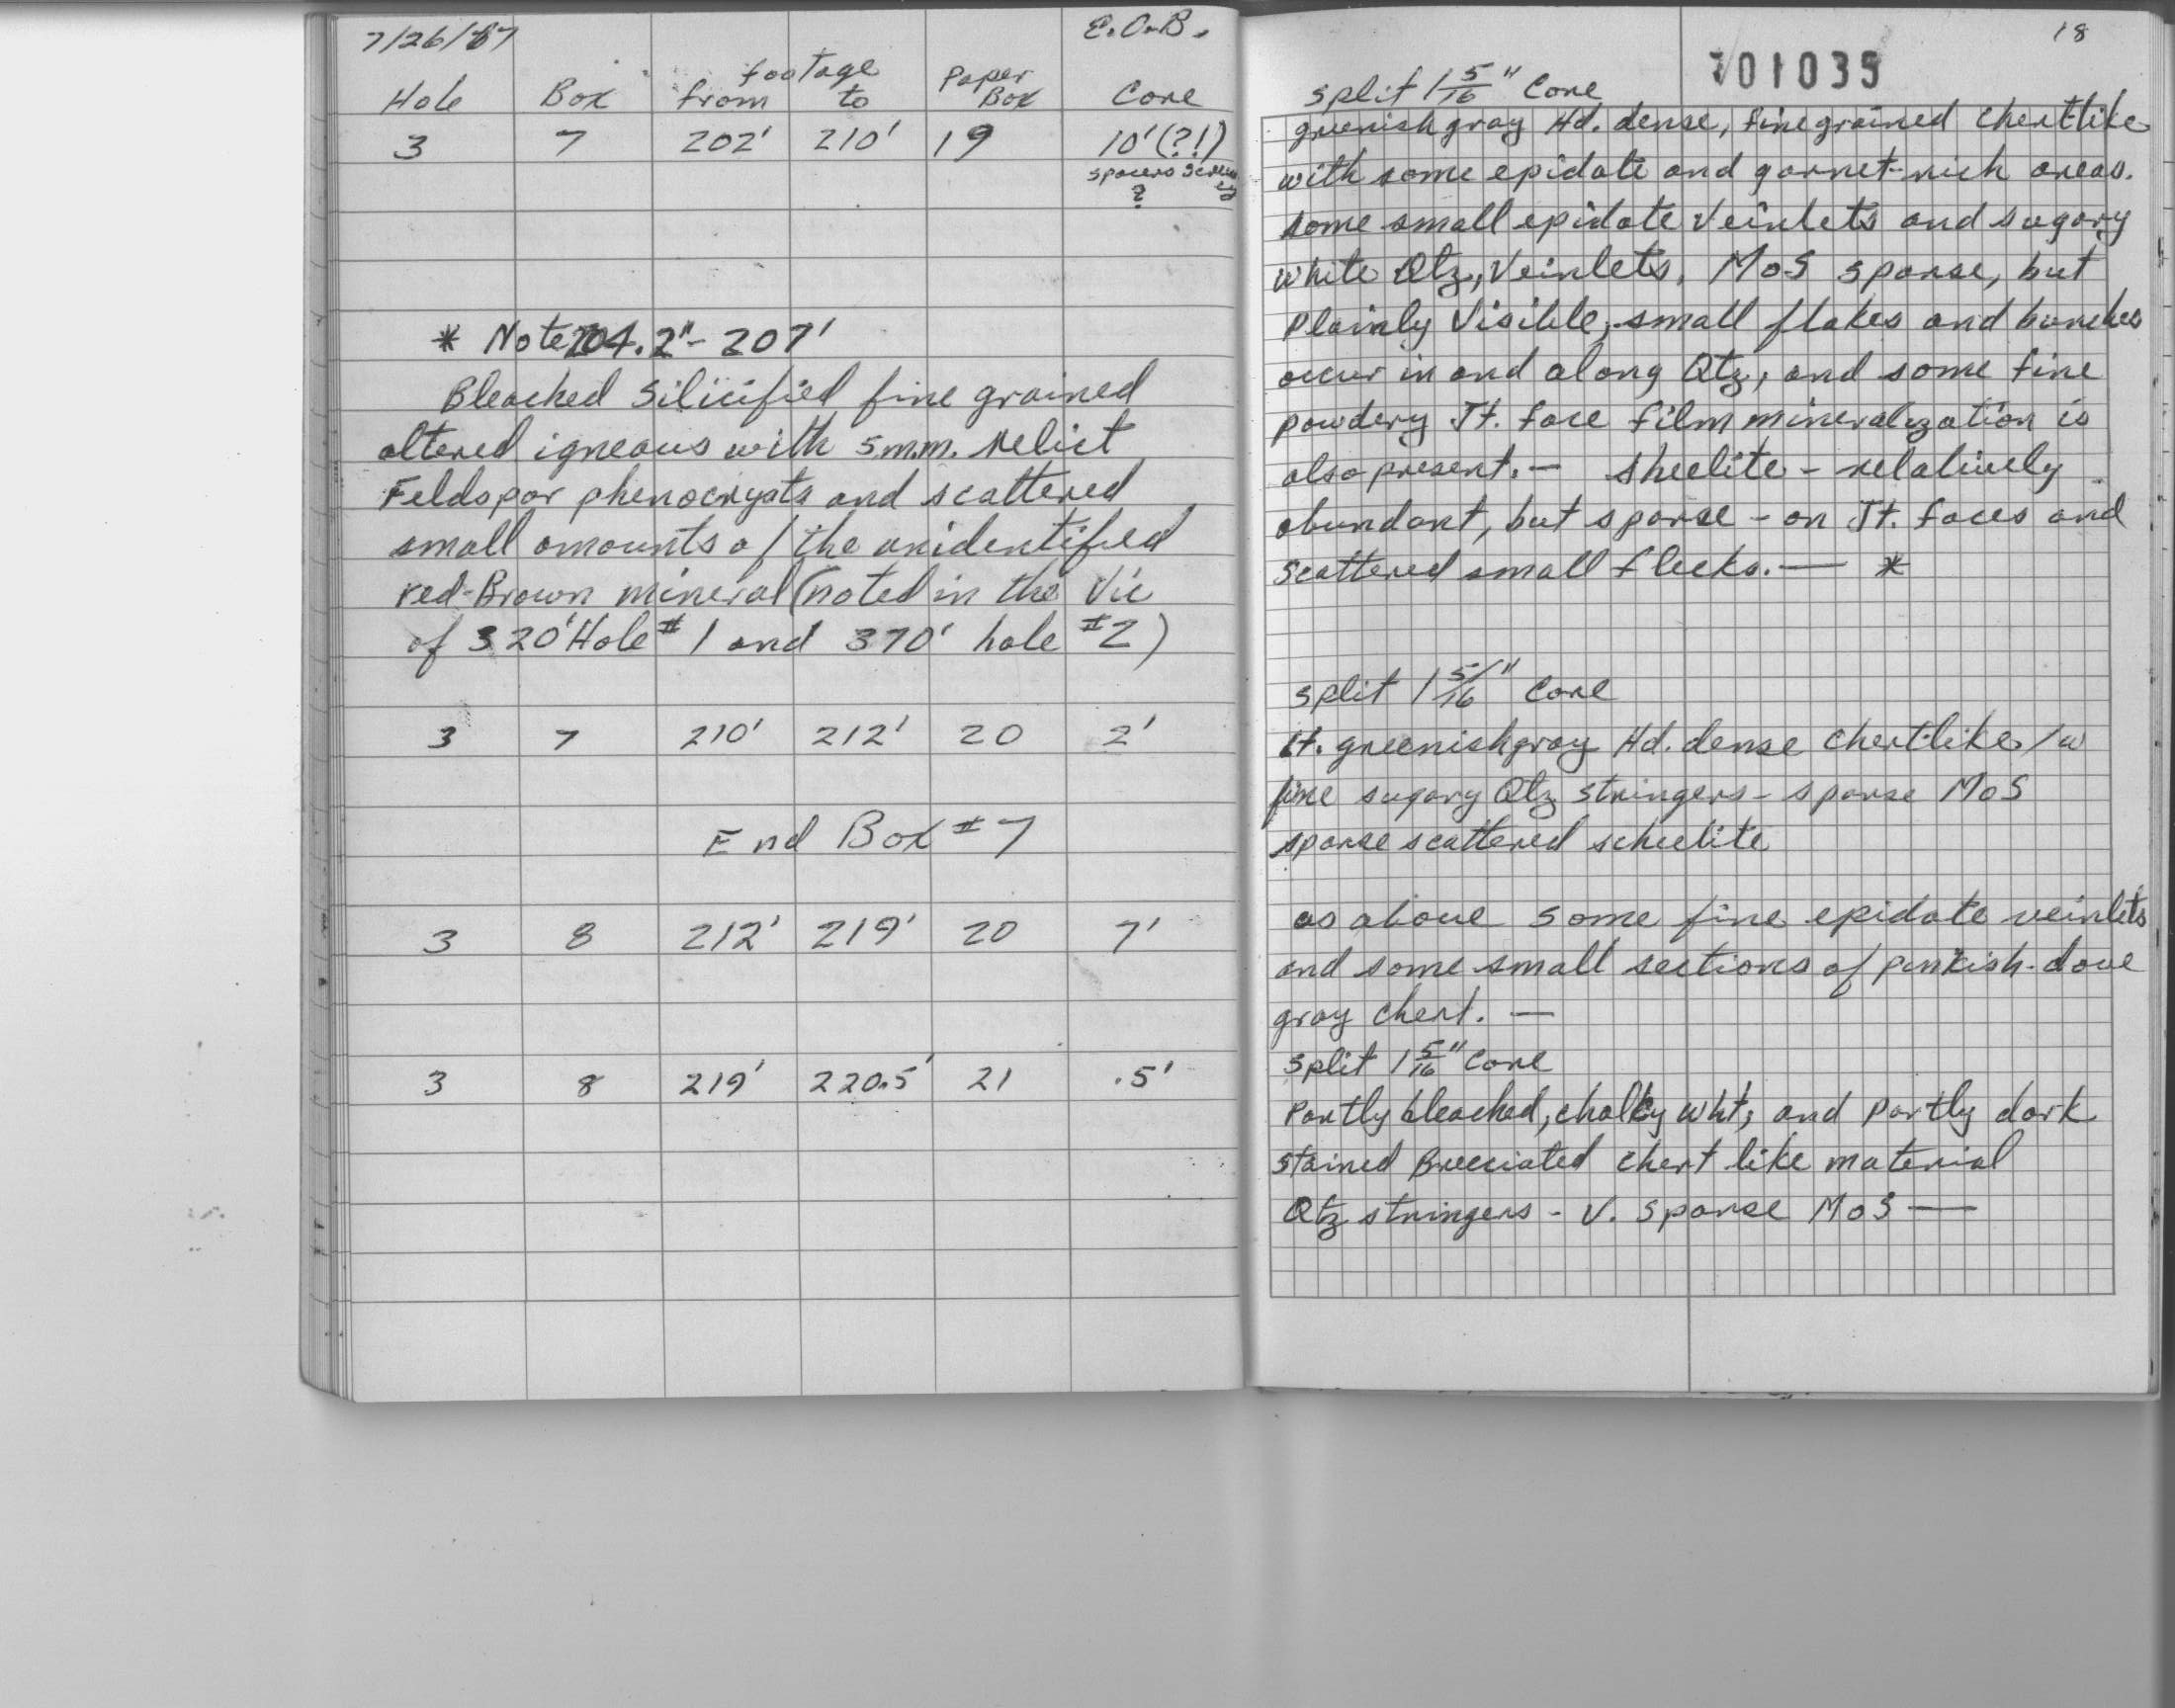 7/26/67 E.O.B.
footage Paper
Hole Box from to Box Core
3 7 202' 210' 19 10'(?!)
spacers
?
* Note 204.2"- 207'
Bleached Silicified fine grained
altered igneous with 5m.m. relict
Feldspar phenocrysts and scattered
small amounts of the unidentified
red-Brown mineral (noted in the Vic
of 320' Hole #1 and 370' hole #2)
3 7 210' 212' 20 2'
End Box #7
3 8 212' 219' 20 7'
3 8 219' 220.5' 21 .5'
18
701035
split 1 5/16" Core
greenish gray Hd. dense, fine grained Chertlike
with some epidote and garnet-rich areas.
some small epidote Veinlets and sugary
white Qtz, Veinlets, MoS sparse, but
Plainly Visible, small flakes and bunches
occur in and along Qtz, and some fine
powdery Jt. face film mineralization is
also present. — sheelite - relatively
abundant, but sparse - on Jt. faces and
scattered small flecks. — *
split 1 5/16" Core
lt. greenish gray Hd. dense Chertlike /w
fine sugary Qtz stringers - sparse MoS
sparse scattered scheelite
as above some fine epidote veinlets
and some small sections of pinkish-dove
gray chert. —
split 1 5/16" Core
Partly bleached, chalky wht, and Partly dark
stained Brecciated chert like material
Qtz stringers - V. sparse MoS —